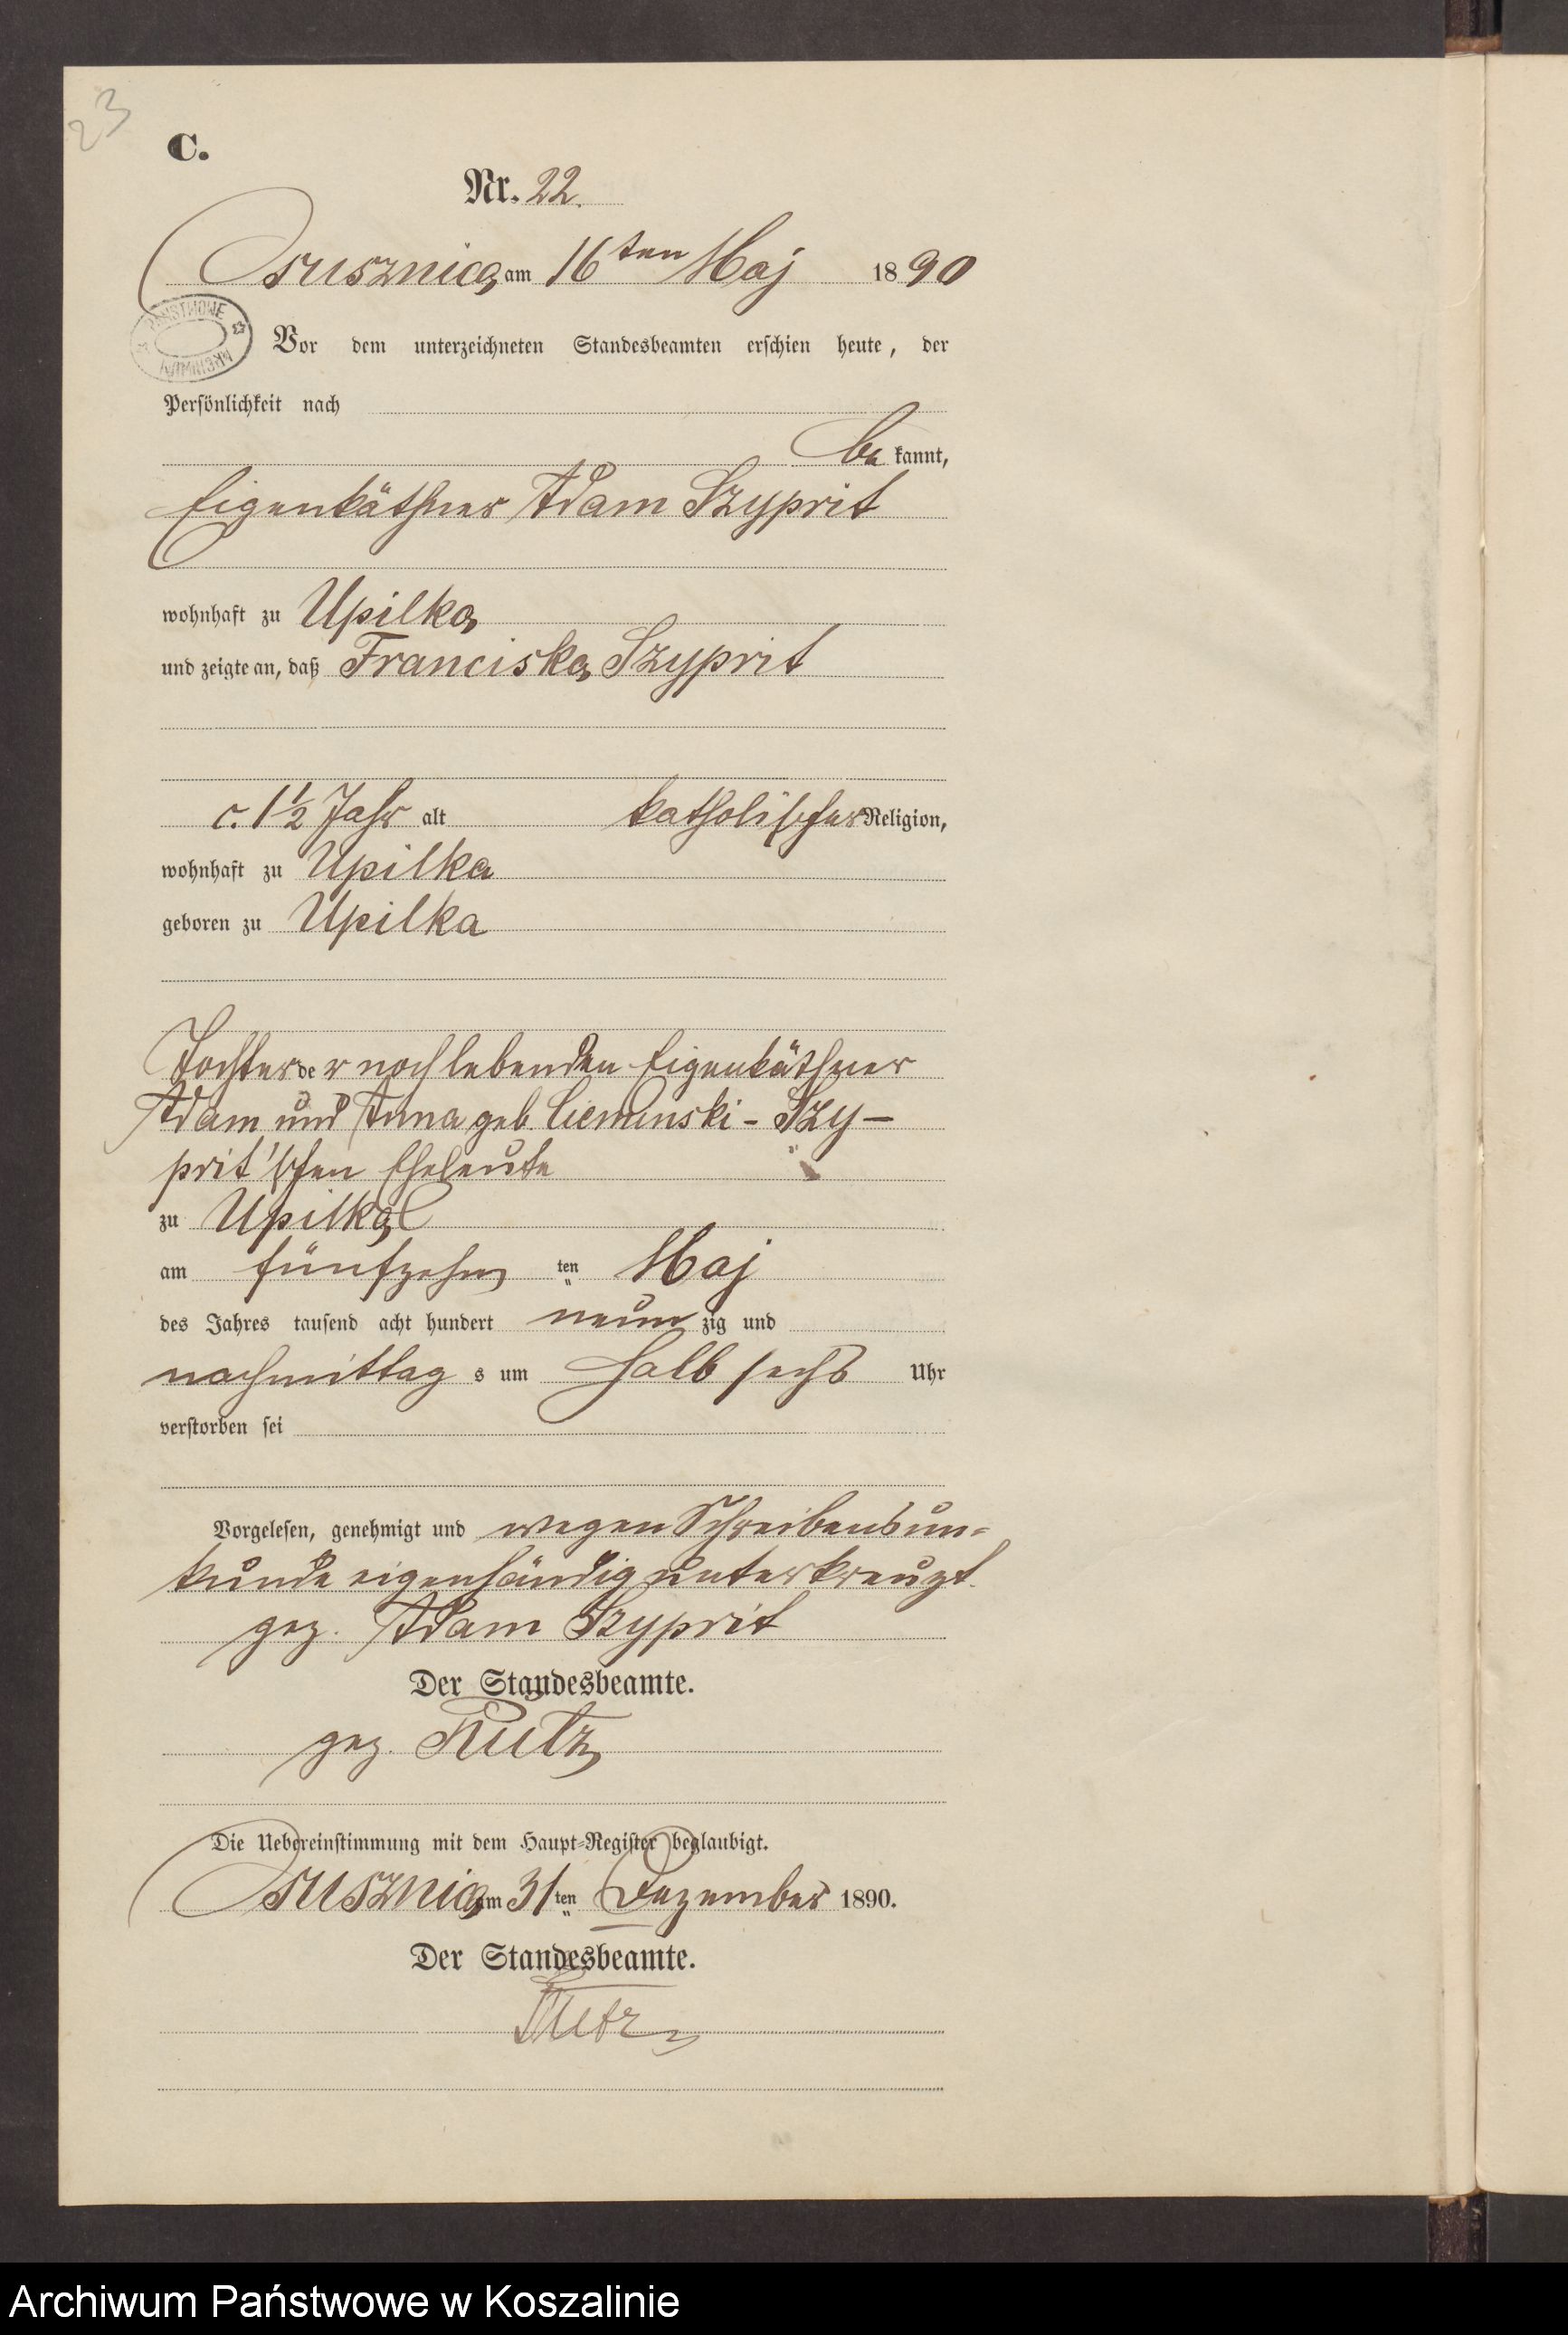 23
C.
Nr. 22.
Osusznica am 16ten Maj 1890
PAŃSTWOWE ARCHIWUM
Vor dem unterzeichneten Standesbeamten erschien heute, der
Persönlichkeit nach
be kannt,
Eigenkäthner Adam Szyprit
wohnhaft zu Upilka
und zeigte an, daß Franciska Szyprit
c. 1 1/2 Jahr alt katholischer Religion,
wohnhaft zu Upilka
geboren zu Upilka
Tochter der noch lebenden Eigenkäthner
Adam und Anna geb Cieminski - Szy-
prit'schen Eheleute
zu Upilka
am fünfzehn ten Maj
des Jahres tausend acht hundert neun zig und
nachmittag s um halb sechs Uhr
verstorben sei
Vorgelesen, genehmigt und wegen Schreibensun-
kunde eigenhändig unterkreuzt.
gez. Adam Szyprit
Der Standesbeamte.
gez. Kutz
Die Uebereinstimmung mit dem Haupt-Register beglaubigt.
Osusznica am 31ten Dezember 1890.
Der Standesbeamte.
Kutz
Archiwum Państwowe w Koszalinie